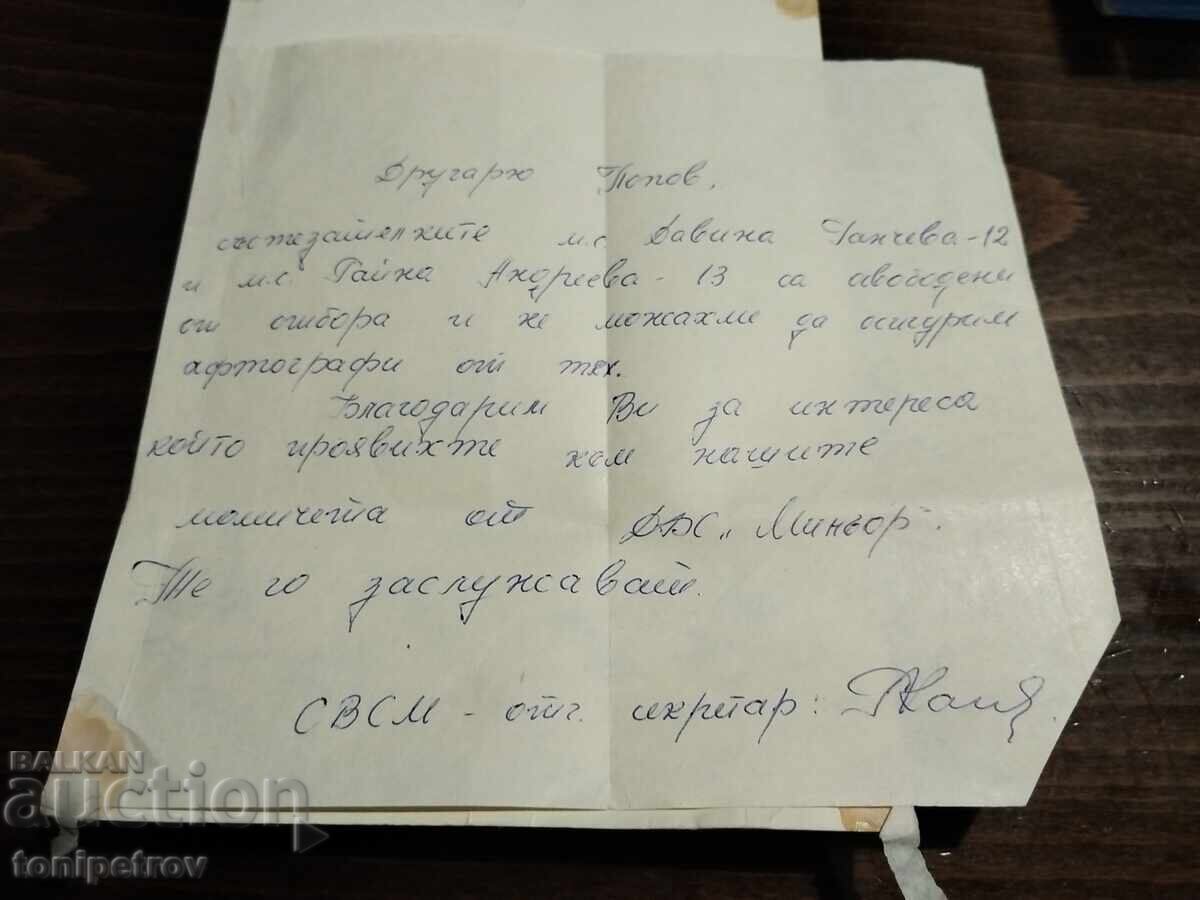 Другарю Попов,
състезателките м.с. Давина Ганчева-12
и м.с. Гайна Андреева-13 са овободени
от отбора и не можахме да осигурим
афтографи от тях.
Благодарим Ви за интереса
който проявихте към нашите
момичета от ДФС „Миньор".
Те го заслужават.
СВСМ - отг. секретар:
BALKAN
auction
tonipetrov